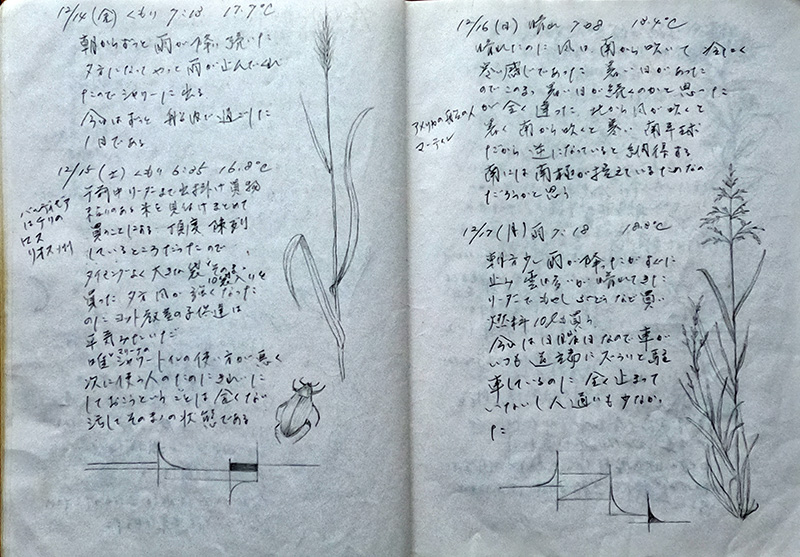 12/14 (金) くもり 7:18 17.7°C
朝からずっと雨が降り続いた
夕方になってやっと雨が止んでくれ
たのでシャワーに出る
今日はずっと船の中で過ごした
1日である
12/15 (土) くもり 6:35 16.8°C
午前中リーダーまで出掛け買物
のある米を見付けまとめて
買うことにする 丁度陳列
しているところだったので
タイミングよく大きな袋
買った 夕方風が強くなった
のにヨット教室の子供達は
平気みたいだ
シャワートイレの使い方が悪く
次に使う人のためにきれいに
しておこうということは全くない
流してそのままの状態である
バルディビア
はチリの
ロス
リオス州
12/16 (日) 晴れ 7:08 18.4°C
晴れたのに風は南から吹いて冷たく
寒い感じであった 暑い日があった
のでこのまま暑い日が続くのかと思った
が全く違った 北から風が吹くと
暑く南から吹くと寒い 南半球
だから逆になっていると納得する
南には南極が控えているためなの
だろうかと思う
アメリカの船の人
マーティン
12/17 (月) 雨 7:18 18.8°C
朝方少し雨が降ったがすぐに
止み雲は多いが晴れてきた
リーダーでもやしぶどうなど買い
燃料10L も買う
今日は日曜日なので車が
いつも道路にずらりと駐
車しているのに全く止まって
いないし人通りも少なかっ
た